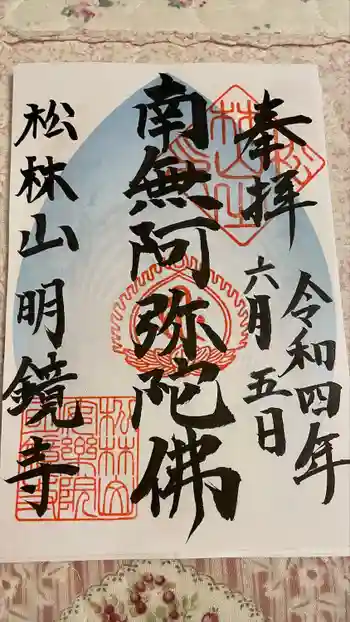 奉拝
令和四年
六月五日
南無阿弥陀佛
松林山明鏡寺